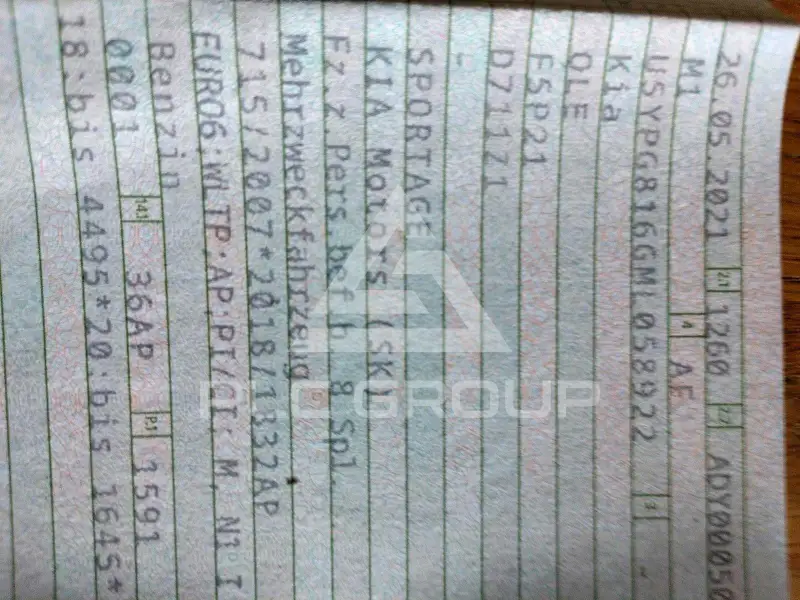 26.05.2021 2.1 1260 2.2 ADY00050
M1 4 AF
U5YPG816GML058922 3 -
Kia
QLE
F5P21
D711Z1
-
SPORTAGE
KIA Motors (SK)
Fz.z.Pers.bef.b. 8 Spl.
Mehrzweckfahrzeug
715/2007*2018/1832AP
EURO6;WLTP;AP;PI/CI; M, N1 I
Benzin
0001 14.1 36AP P.1 1591
18:bis 4495*20:bis 1645*
PLC GROUP